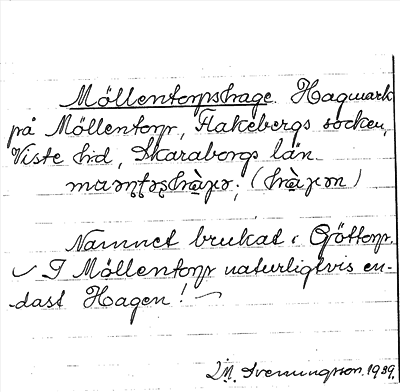 Möllentorpshage. Hagmark
på Möllentorp, Flakebergs socken,
Viste hd, Skaraborgs län.
Namnet brukat i Göttorp.
I Möllentorp naturligtvis en-
dast Hagen!
Sveningson. 1939.